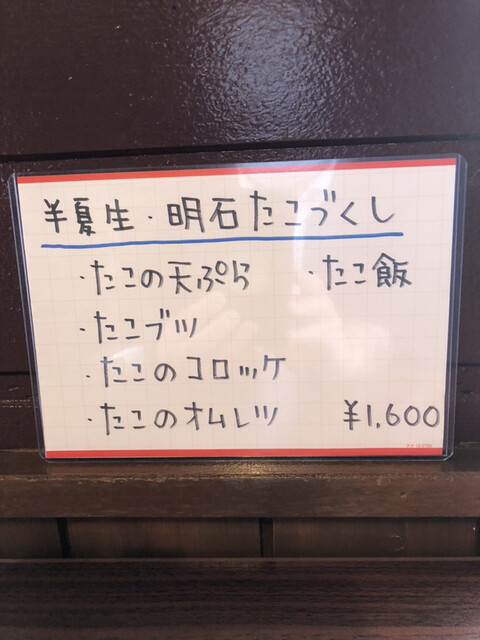 半夏生・明石たこづくし
・たこの天ぷら ・たこ飯
・たこブツ
・たこのコロッケ
・たこのオムレツ ¥1,600